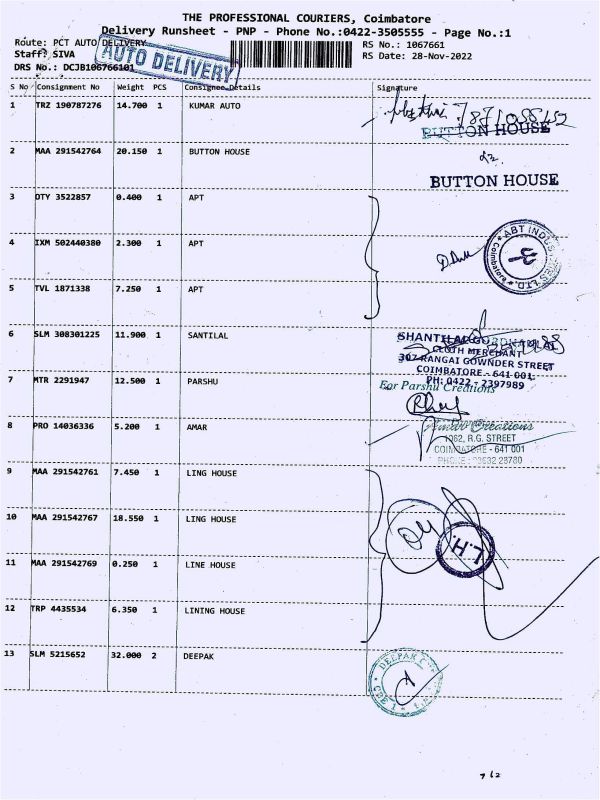 THE PROFESSIONAL COURIERS, Coimbatore
Delivery Runsheet - PNP - Phone No.:0422-3505555 - Page No.:1
Route: PCT AUTO DELIVERY
RS No.: 1067661
Staff: SIVA
RS Date: 28-Nov-2022
DRS No.: DCJB106766101
AUTO DELIVERY
S No Consignment No Weight PCS Consignee Details Signature
1 TRZ 190787276 14.700 1 KUMAR AUTO
BUTTON HOUSE
2 MAA 291542764 20.150 1 BUTTON HOUSE
BUTTON HOUSE
3 DTY 3522857 0.400 1 APT
4 IXM 502440380 2.300 1 APT
ABT INDUSTRIES LTD.
Coimbatore
5 TVL 1871338 7.250 1 APT
6 SLM 308301225 11.900 1 SANTILAL
CLOTH MERCHANT
307 RANGAI GOWNDER STREET
COIMBATORE - 641 001
PH: 0422 - 2397989
7 MTR 2291947 12.500 1 PARSHU
For Parshu Creations
8 PRO 14036336 5.200 1 AMAR
Amar Creations
1062, R.G. STREET
COIMBATORE - 641 001
9 MAA 291542761 7.450 1 LING HOUSE
10 MAA 291542767 18.550 1 LING HOUSE
L.H.
11 MAA 291542769 0.250 1 LINE HOUSE
12 TRP 4435534 6.350 1 LINING HOUSE
13 SLM 5215652 32.000 2 DEEPAK
DEEPAK